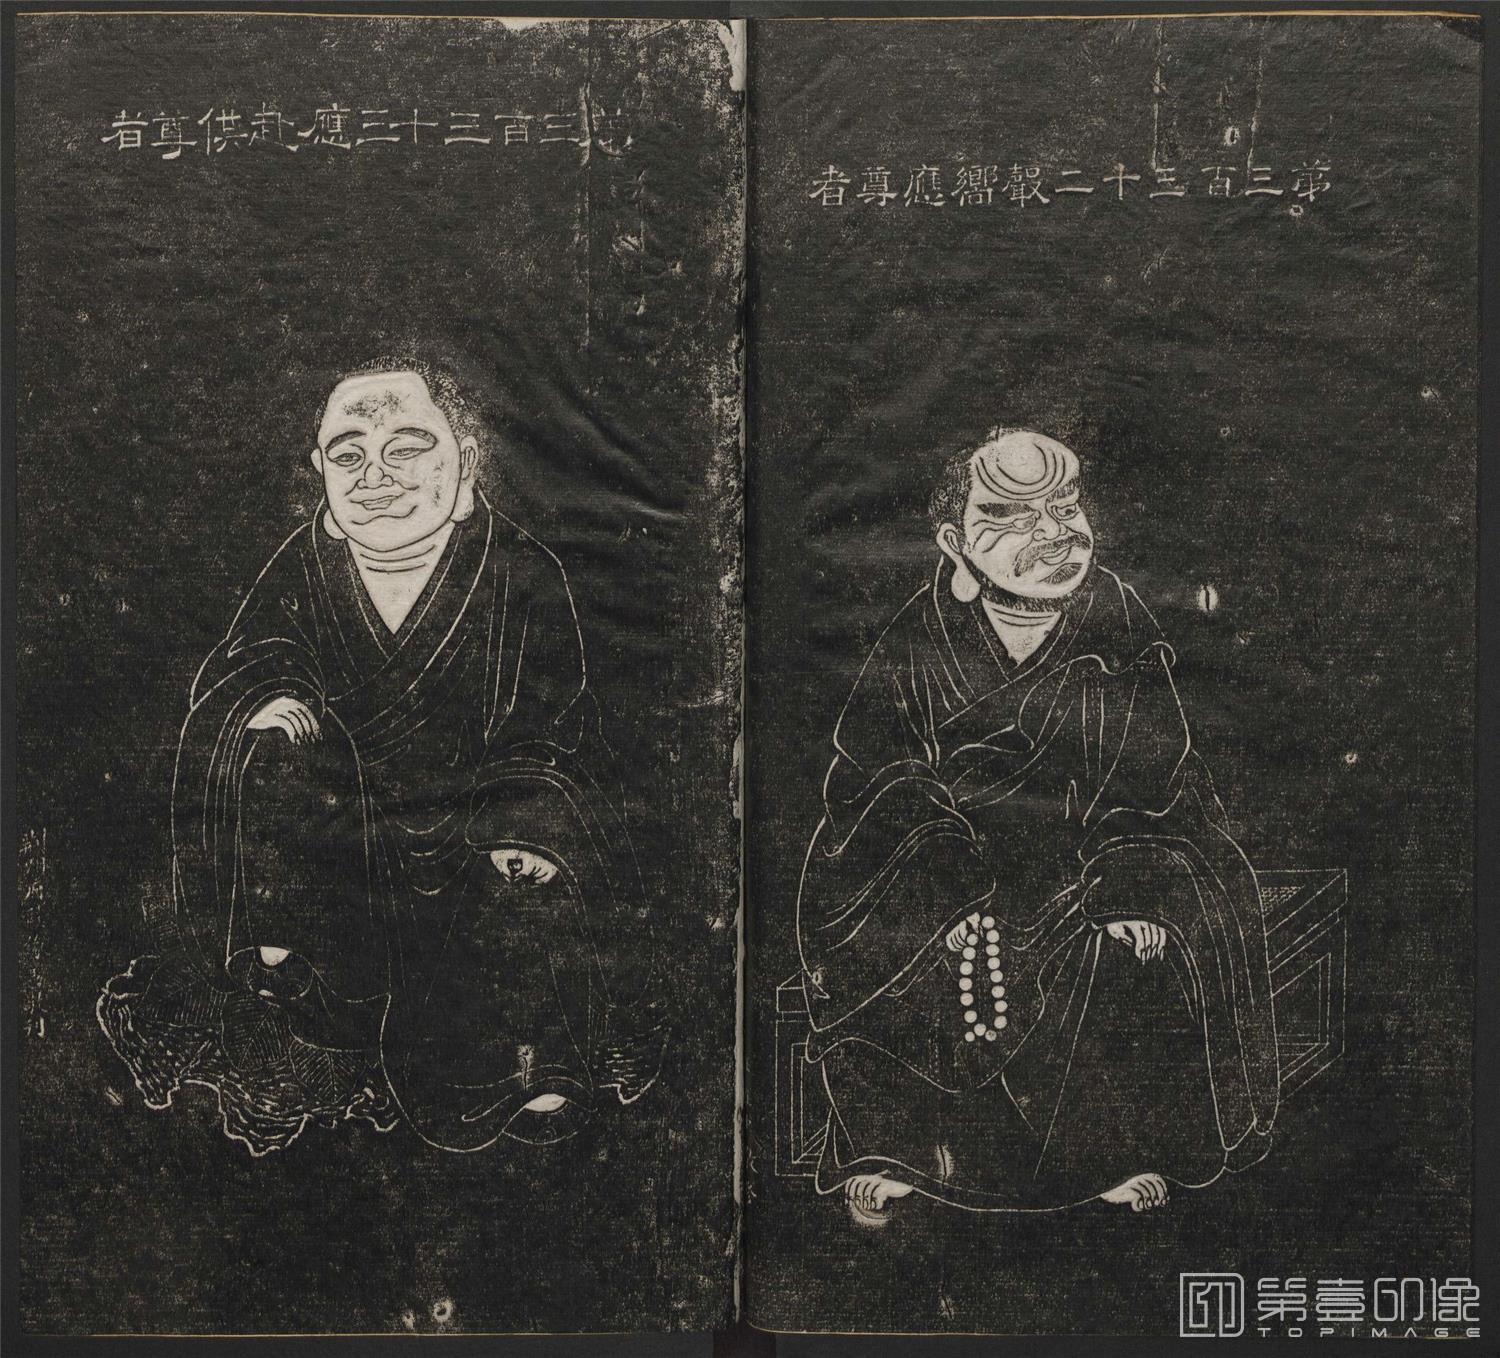 苐三百三十二聲嚮應尊者
苐三百三十三應赴供尊者
第壹印像
TOPIMAGE